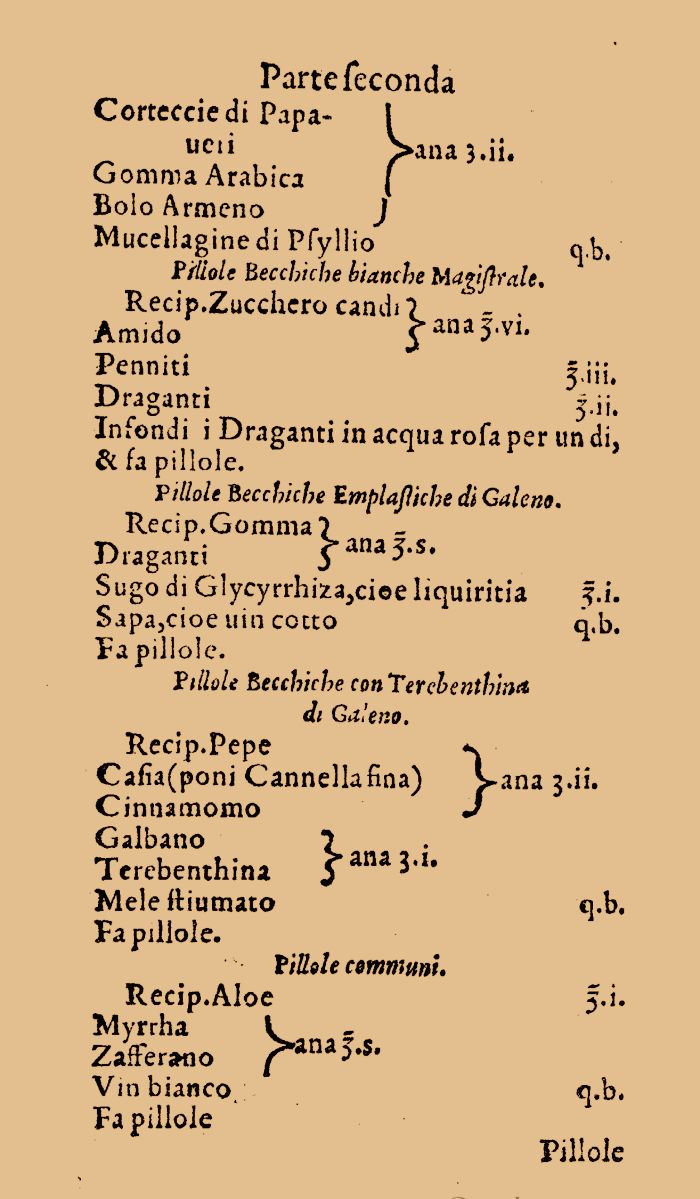 Parte ſeconda
Corteccie di Papa-
ueri
Gomma Arabica } ana ʒ.ii.
Bolo Armeno
Mucellagine di Pſyllio q.b.
Pillole Becchiche bianche Magiſtrale.
Recip.Zucchero candi } ana ʒ̄.vi.
Amido
Penniti ʒ̄.iii.
Draganti ʒ̄.ii.
Infondi i Draganti in acqua roſa per un di,
& fa pillole.
Pillole Becchiche Emplaſtiche di Galeno.
Recip.Gomma } ana ʒ̄.s.
Draganti
Sugo di Glycyrrhiza,cioe liquiritia ʒ̄.i.
Sapa,cioe uin cotto q.b.
Fa pillole.
Pillole Becchiche con Terebenthina
di Galeno.
Recip.Pepe
Caſia(poni Cannella fina) } ana ʒ.ii.
Cinnamomo
Galbano } ana ʒ.i.
Terebenthina
Mele ſtiumato q.b.
Fa pillole.
Pillole communi.
Recip.Aloe ʒ̄.i.
Myrrha } ana ʒ̄.s.
Zafferano
Vin bianco q.b.
Fa pillole
Pillole